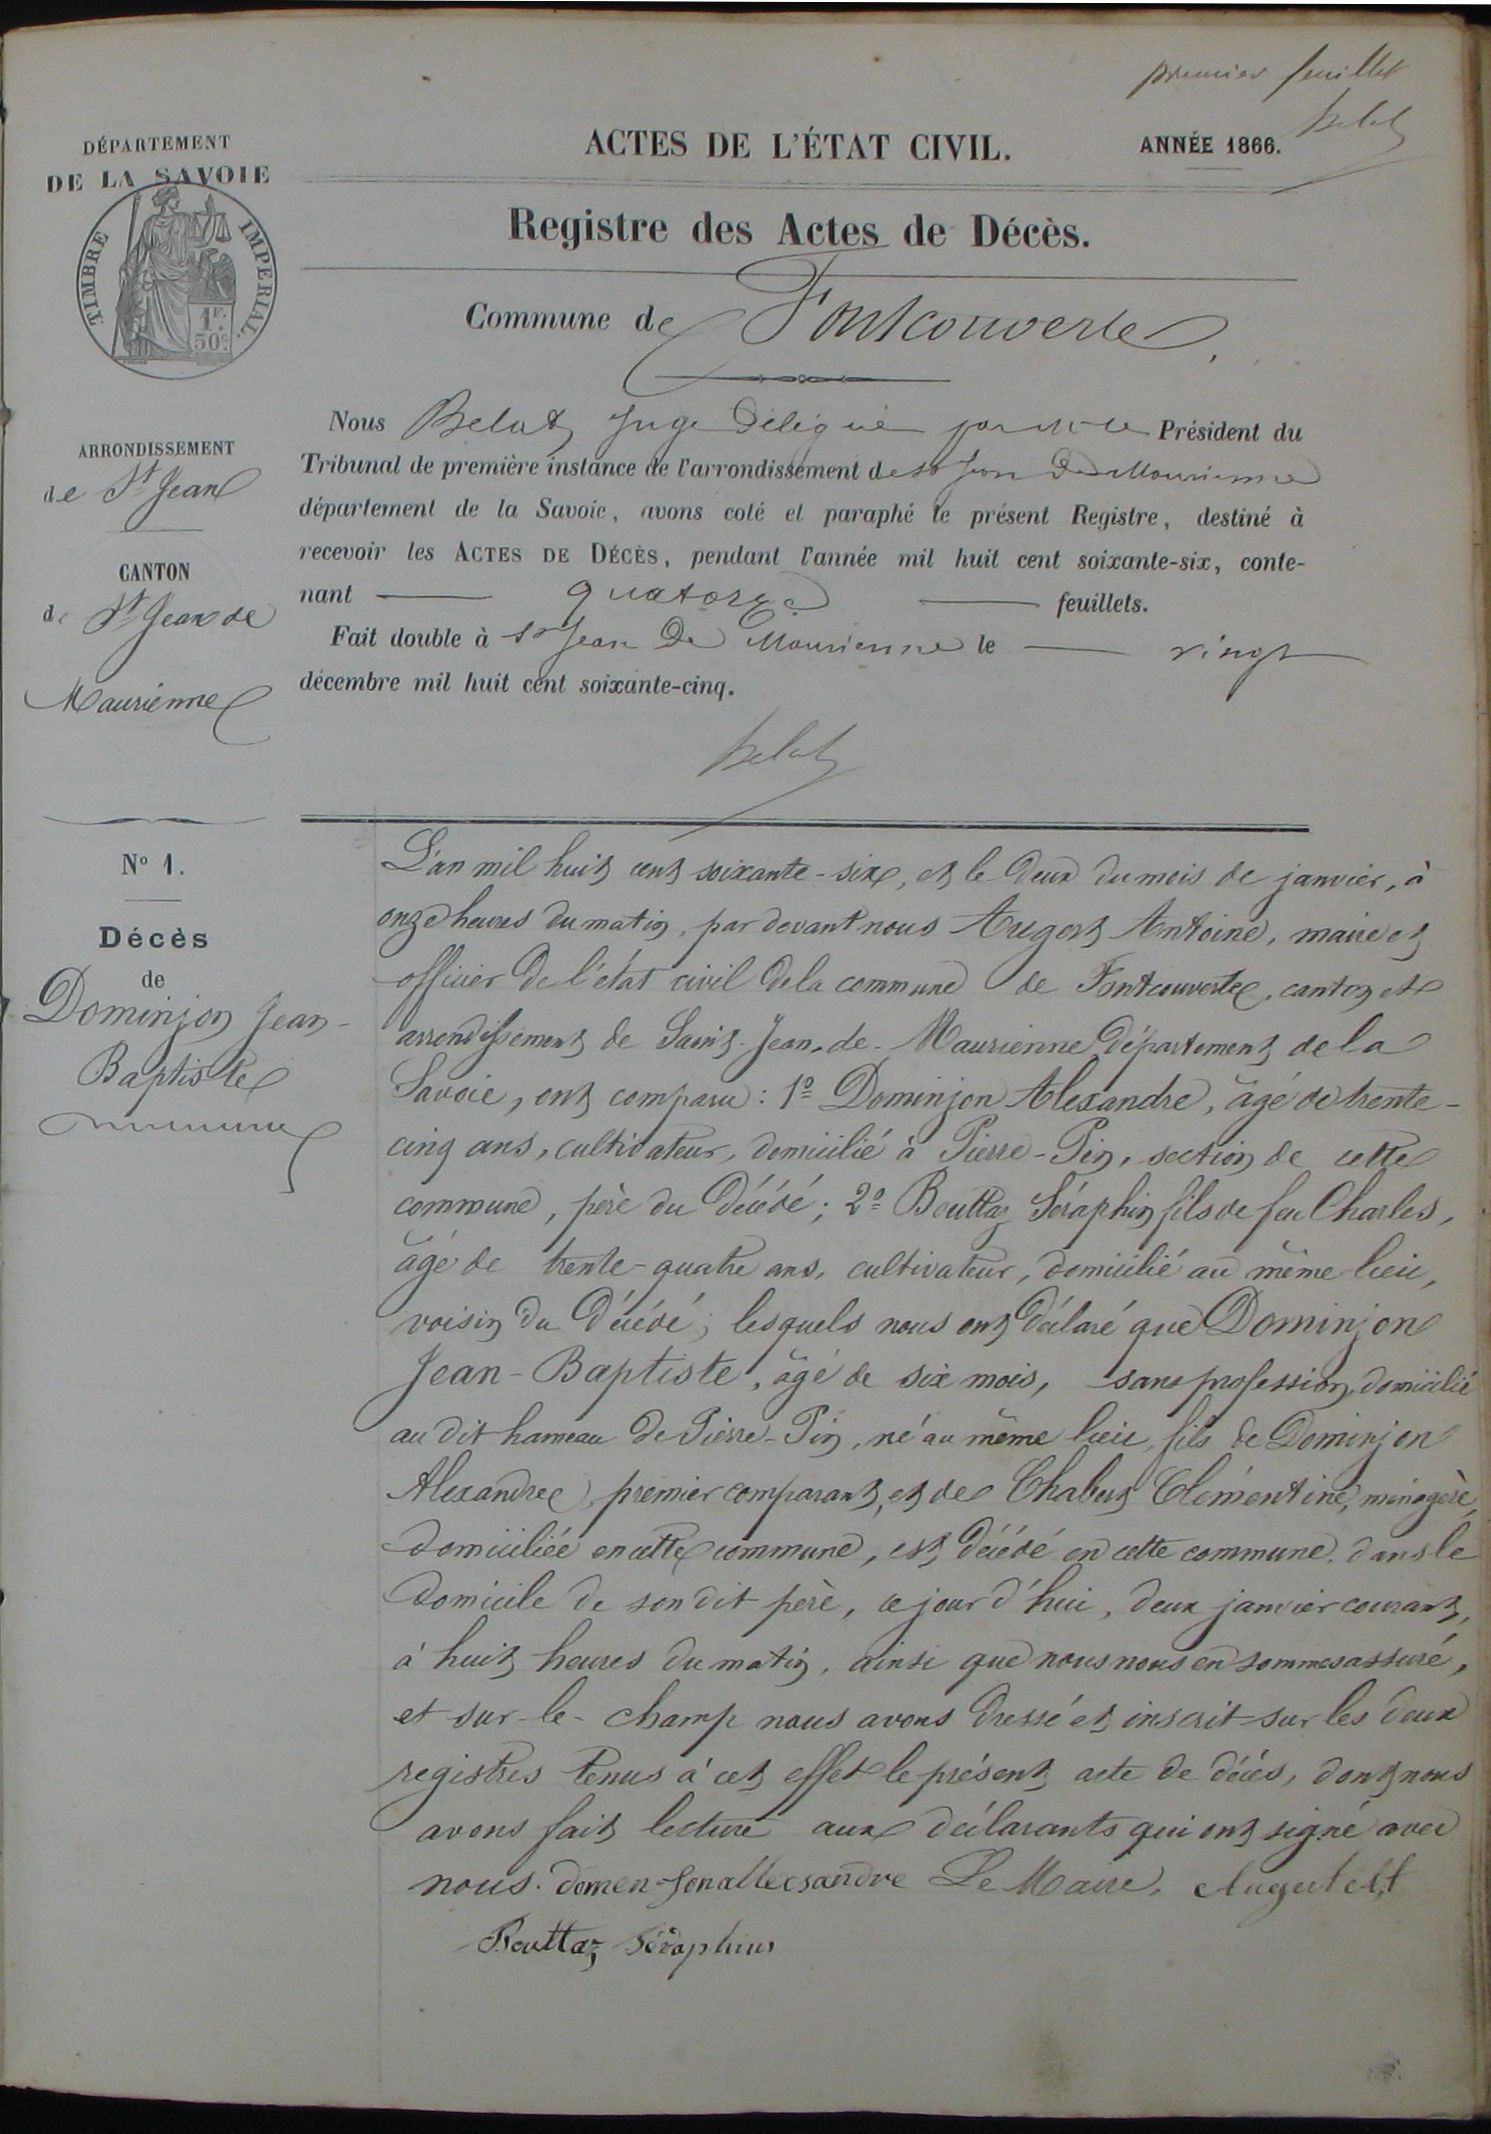 premier feuillet
Belat
DÉPARTEMENT
DE LA SAVOIE
ACTES DE L'ÉTAT CIVIL.
ANNÉE 1866.
TIMBRE IMPERIAL.
1F.
50C.
Registre des Actes de Décès.
Commune de Fontcouverte
ARRONDISSEMENT
de St Jean
CANTON
de St Jean de
Maurienne
Nous Belat Juge délégué par Mr le Président du
Tribunal de première instance de l'arrondissement de St Jean De Maurienne
département de la Savoie, avons coté et paraphé le présent Registre, destiné à
recevoir les ACTES DE DÉCÈS, pendant l'année mil huit cent soixante-six, conte-
nant quatorze feuillets.
Fait double à St Jean De Maurienne le vingt
décembre mil huit cent soixante-cinq.
Belat
No 1.
Décès
de
Dominjon Jean-
Baptiste
L'an mil huit cent soixante-six, et le deux du mois de janvier, à
onze heures du matin, par devant nous Augert Antoine, maire et
officier de l'état civil de la commune de Fontcouverte, canton et
arrondissement de Saint-Jean-de-Maurienne département de la
Savoie, ont comparu: 1º Dominjon Alexandre, âgé de trente-
cinq ans, cultivateur, domicilié à Pierre-Pin, section de cette
commune, père du décédé; 2º Bouttaz Séraphin fils de feu Charles,
âgé de trente-quatre ans, cultivateur, domicilié au même lieu,
voisin du décédé; lesquels nous ont déclaré que Dominjon
Jean-Baptiste, âgé de six mois, sans profession, domicilié
au dit hameau de Pierre-Pin, né au même lieu, fils de Dominjon
Alexandre, premier comparant, et de Chabert Clémentine, ménagère,
domiciliée en cette commune, est décédé en cette commune, dans le
domicile de son dit père, ce jour d'hui, deux janvier courant,
à huit heures du matin, ainsi que nous nous en sommes assuré,
et sur-le-champ nous avons dressé et inscrit sur les deux
registres tenus à cet effet le présent acte de décès, dont nous
avons fait lecture aux déclarants qui ont signé avec
nous. domen-jon allecsandre Le Maire, Augert Ant
Bouttaz Séraphin